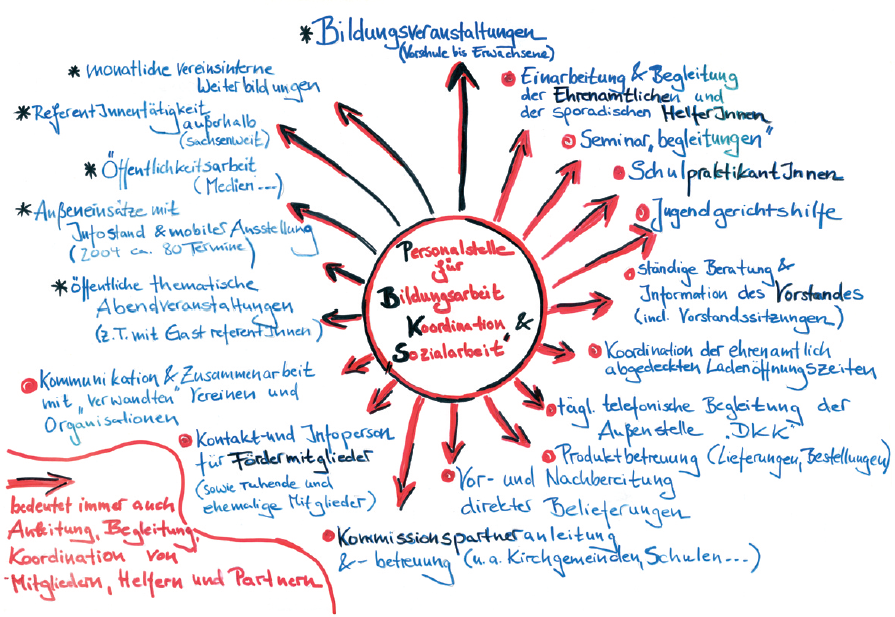 * Bildungsveranstaltungen
(Vorschule bis Erwachsene)
* monatliche vereinsinterne
Weiterbildungen
* ReferentInnentätigkeit
außerhalb
(sachsenweit)
* Öffentlichkeitsarbeit
(Medien ---)
* Außeneinsätze mit
Infostand & mobiler Ausstellung
(2004 ca. 80 Termine)
* öffentliche thematische
Abendveranstaltungen
(z.T. mit GastreferentInnen)
Kommunikation & Zusammenarbeit
mit "verwandten" Vereinen und
Organisationen
Kontakt- und Infoperson
für Fördermitglieder
(sowie ruhende und
ehemalige Mitglieder)
Personalstelle
für
Bildungsarbeit
Koordination &
Sozialarbeit
Einarbeitung & Begleitung
der Ehrenamtlichen und
der sporadischen HelferInnen
Seminar"begleitungen"
SchulpraktikantInnen
Jugendgerichtshilfe
ständige Beratung &
Information des Vorstandes
(incl. Vorstandssitzungen)
Koordination der ehrenamtlich
abgedeckten Ladenöffnungszeiten
tägl. telefonische Begleitung der
Außenstelle "DKK"
Produktbetreuung (Lieferungen, Bestellungen)
Vor- und Nachbereitung
direkter Belieferungen
Kommissionspartneranleitung
& - betreuung (u.a. Kirchgemeinden, Schulen ---)
bedeutet immer auch
Anleitung, Begleitung,
Koordination von
Mitgliedern, Helfern und Partnern